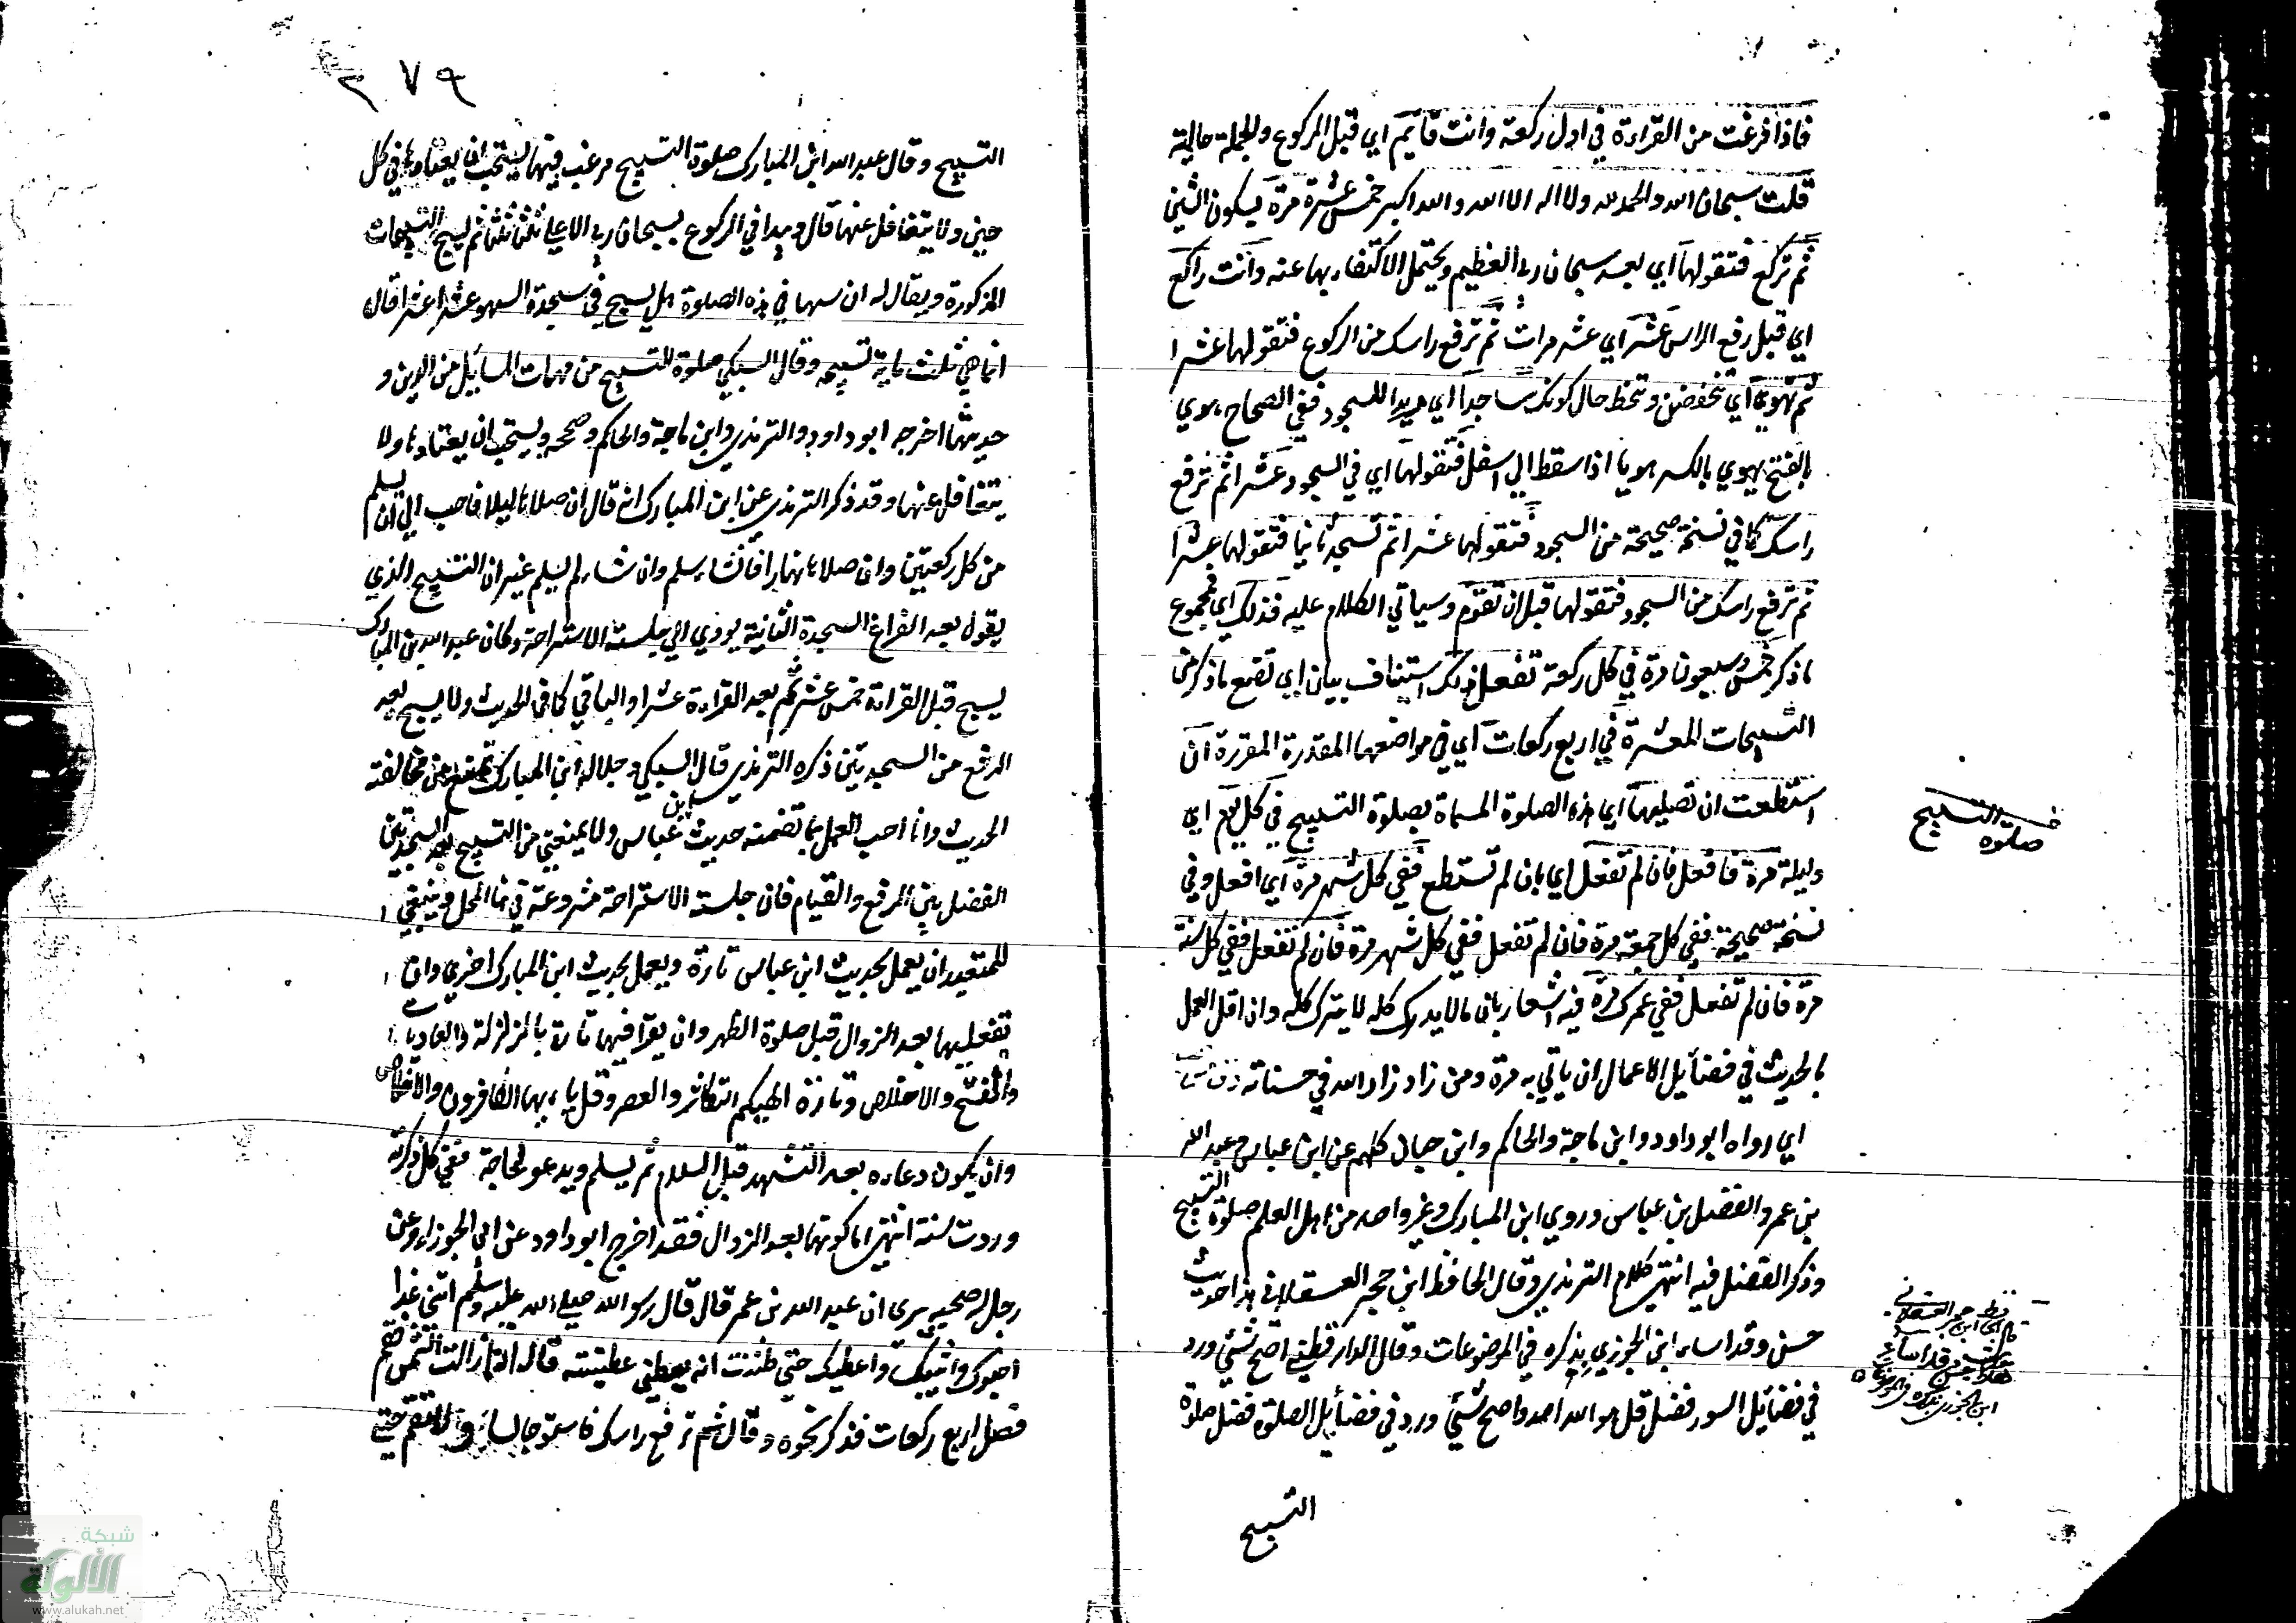 فاذا فرغت من القراءة في اول ركعة وانت قايم اي قبل الركوع والجملة حالية
قلت سبحان الله والحمد لله ولا اله الا الله والله اكبر خمس عشرة مرة
ثم تركع فتقولها اي بعد سبحان ربي العظيم ويحتمل الاكتفاء بها عنه وانت راكع
اي قبل رفع الراس عشرا اي عشر مرات ثم ترفع راسك من الركوع فتقولها عشرا
ثم تهوي اي تنخفض وتنحط حال كونك ساجدا اي مريدا للسجود ففي الصحاح هوي
بالفتح يهوي بالكسر هويا اذا سقط الي اسفل فتقولها اي في السجود عشرا ثم ترفع
راسك كما في نسخة صحيحة من السجود فتقولها عشرا ثم تسجد ثانيا فتقولها عشرا
ثم ترفع راسك من السجود فتقولها قبل ان تقوم وسياتي الكلام عليه فذلك اي مجموع
ما ذكر خمس وسبعون مرة في كل ركعة تفعل ذلك استيناف بيان اي تصنع ما ذكر من
التسبيحات المعشرة في اربع ركعات اي في مواضعها المقدرة المقررة ان
استطعت ان تصليها اي هذه الصلوة المسماة بصلوة التسبيح في كل يوم اي
وليلة مرة فافعل فان لم تفعل اي بان لم تستطع ففي كل شهر مرة اي افعل وفي
نسخة صحيحة ففي كل جمعة مرة فان لم تفعل ففي كل شهر مرة فان لم تفعل ففي كل سنة
مرة فان لم تفعل ففي عمرك مرة فيه اشعار بان ما لا يدرك كله لا يترك كله وان اقل العمل
بالحديث في فضايل الاعمال ان ياتي به مرة ومن زاد زاد الله في حسناته
اي رواه ابو داود وابن ماجة والحاكم وابن حبان كلهم عن ابن عباس وعبد الله
بن عمر والفضل بن عباس وروي ابن المبارك وغير واحد من اهل العلم صلوة التسبيح
وذكر الفضل فيه انتهي كلام الترمذي وقال الحافظ ابن حجر العسقلاني هذا حديث
حسن وقد اساء ابن الجوزي بذكره في الموضوعات وقال الدارقطني اصح شيئ ورد
في فضايل السور فضل قل هو الله احد واصح شيئ ورد في فضايل الصلوة فضل صلوة
التسبيح
صلوة التسبيح
ابن حجر العسقلاني
ابن الجوزي بذكره في الموضوعات
٢٧٩
التسبيح وقال عبد الله ابن المبارك صلوة التسبيح مرغب فيها يستحب ان يعتادها في كل
حين ولا يتغافل عنها قال ويبدا في الركوع بسبحان ربي الاعلي ثلثا ثم يسبح التسبيحات
المذكورة ويقال له ان سها في هذه الصلوة هل يسبح في سجدة السهو عشرا عشرا قال
انما هي ثلث ماية تسبيحة وقال السبكي صلوة التسبيح من مهمات المسائل من الدين و
حديثها اخرجه ابو داود والترمذي وابن ماجة والحاكم وصححه ويستحب ان يعتادها ولا
يتغافل عنها وقد ذكر الترمذي عن ابن المبارك انه قال ان صلاها ليلا فاحب الي ان يسلم
من كل ركعتين وان صلاها نهارا فان شاء سلم وان شاء لم يسلم غير ان التسبيح الذي
يقول بعد الفراغ السجدة الثانية يودي الي جلسة الاستراحة وكان عبد الله بن المبارك
يسبح قبل القراءة خمس عشر ثم بعد القراءة عشرا والباقي كما في الحديث ولا يسبح بعد
الرفع من السجدتين ذكره الترمذي قال السبكي وجلالة ابن المبارك تمنع من مخالفته
الحديث وانا احب العمل بما تضمنه حديث ابن عباس ولا يمنعني من التسبيح بعد السجدتين
الفضل بين الرفع والقيام فان جلسة الاستراحة مشروعة في هذا المحل وينبغي
للمتعبد ان يعمل بحديث ابن عباس تارة ويعمل بحديث ابن المبارك اخري وان
تفعليها بعد الزوال قبل صلوة الظهر وان يقرا فيها تارة بالزلزلة والعاديات
والفتح والاخلاص وتارة الهيكم التكاثر والعصر وقل يا ايها الكافرون والاخلاص
وان يكون دعاءه بعد التشهد قبل السلام ثم يسلم ويدعو لحاجة ففي كل ذكرته
وردت سنة انتهي اما كونها بعد الزوال فقد اخرج ابو داود عن ابي الجوزاء وعن
رجل له صحبة يرى ان عبد الله بن عمر قال قال رسول الله صلي الله عليه وسلم ائتني غدا
احبوك واثيبك واعطيك حتي ظننت انه يعطني عطيته قال اذا زالت الشمس فقم
فصل اربع ركعات فذكر نحوه وقال ثم ترفع راسك فاستو جالسا ولا تقم حتي
شبكة
الألوكة
www.alukah.net